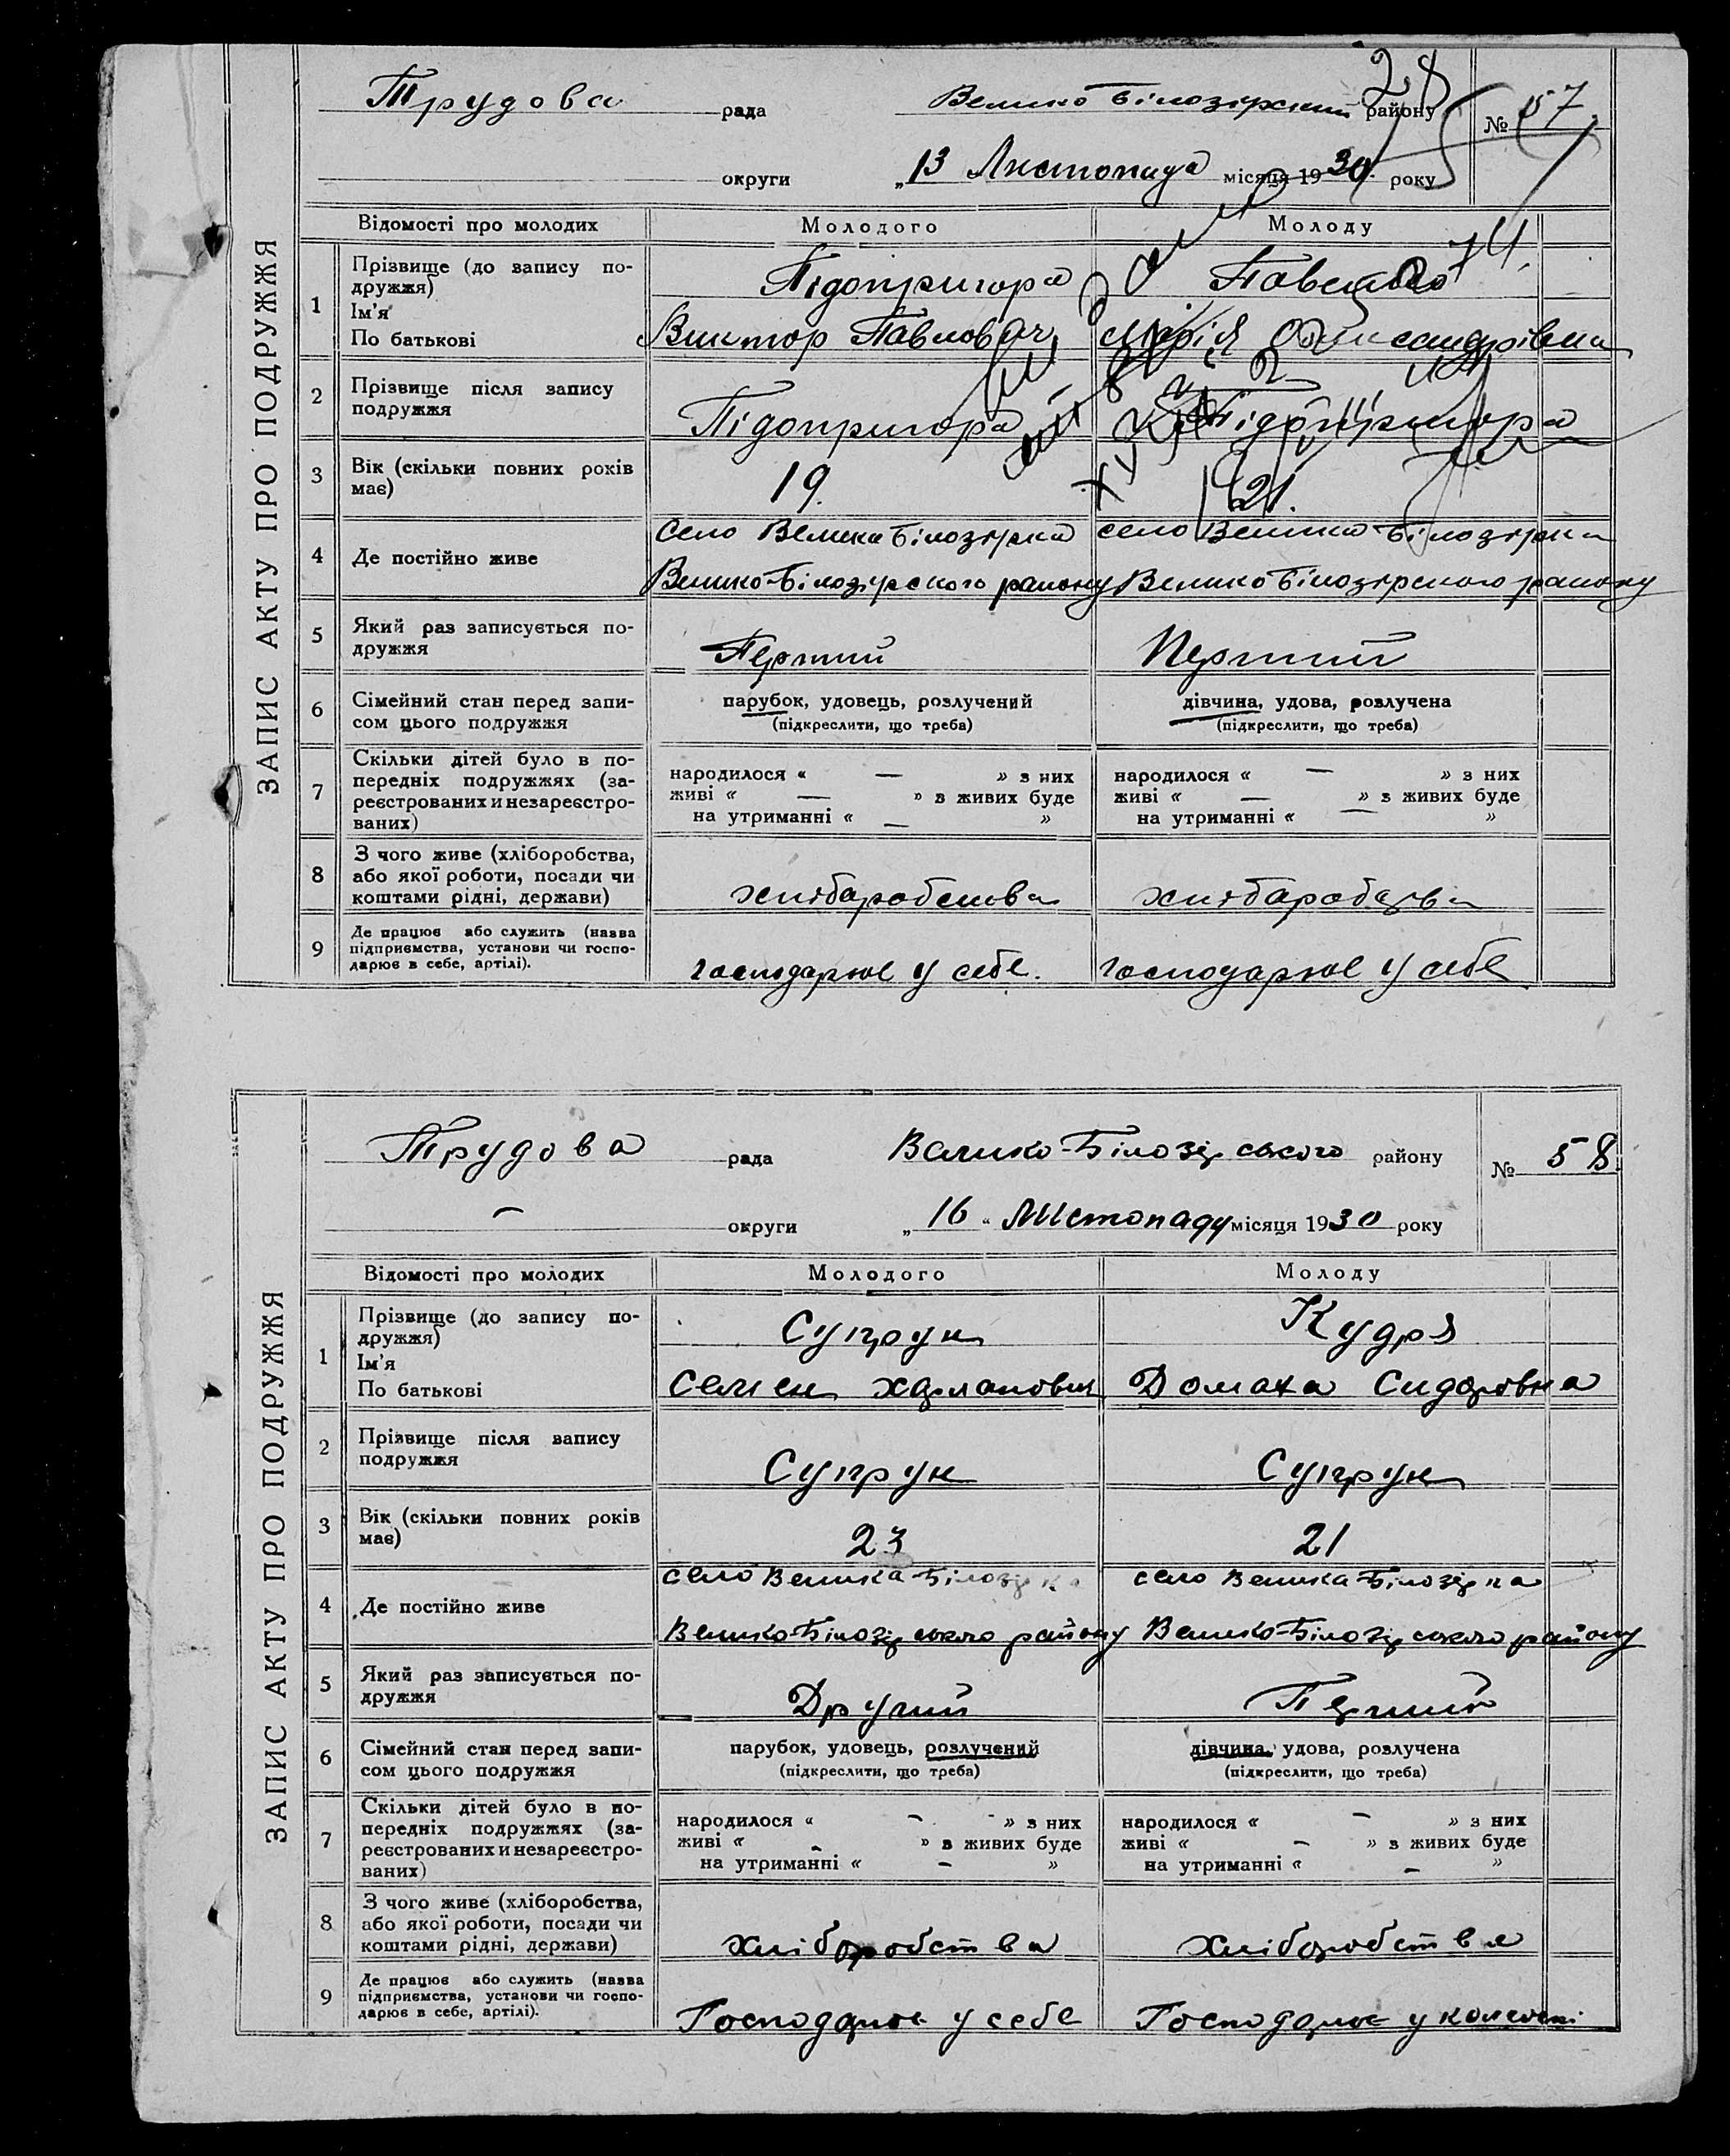 ЗАПИС АКТУ ПРО ПОДРУЖЖЯ
Трудова рада Велико Білозірский району № 57
округи „13 Листопада місяця 1930 року
28
Відомості про молодих Молодого Молоду
1 Прізвище (до запису по-
дружжя)
Ім'я
По батькові
Підопригора
Виктор Павлович
Марія Олександрівна
2 Прізвище після запису
подружжя
Підопригора Підопригора
3 Вік (скільки повних років
має)
19. 21.
4 Де постійно живе
Село Велика Білозірка село Велика-Білозірка
Велико-Білозірского району Велико Білозірского району
5 Який раз записується по-
дружжя
Перший Перший
6 Сімейний стан перед запи-
сом цього подружжя
парубок, удовець, розлучений дівчина, удова, розлучена
(підкреслити, що треба) (підкреслити, що треба)
7 Скільки дітей було в по-
передніх подружжях (за-
реєстрованих и незареєстро-
ваних)
народилося « — » з них народилося « — » з них
живі « — » з живих буде живі « — » з живих буде
на утриманні « — » на утриманні « — »
8 З чого живе (хліборобства,
або якої роботи, посади чи
коштами рідні, держави)
хлібаробства хлібаробства
9 Де працює або служить (назва
підприємства, установи чи госпо-
дарює в себе, артілі).
господарює у себе. господарює у себе
ЗАПИС АКТУ ПРО ПОДРУЖЖЯ
Трудова рада Велико-Білозірського району № 58.
— округи „16“ Листопаду місяця 1930 року
Відомості про молодих Молодого Молоду
1 Прізвище (до запису по-
дружжя)
Ім'я
По батькові
Супрун Кудря
Семен Харланович Домаха Сидоровна
2 Прізвище після запису
подружжя
Супрун Супрун
3 Вік (скільки повних років
має)
23 21
4 Де постійно живе
село Велика-Білозірка село Велика Білозірка
Велико-Білозірського району Велико-Білозірського району
5 Який раз записується по-
дружжя
Другий Перший
6 Сімейний стан перед запи-
сом цього подружжя
парубок, удовець, розлучений дівчина, удова, розлучена
(підкреслити, що треба) (підкреслити, що треба)
7 Скільки дітей було в по-
передніх подружжях (за-
реєстрованих и незареєстро-
ваних)
народилося « - » з них народилося « - » з них
живі « - » з живих буде живі « - » з живих буде
на утриманні « - » на утриманні « - »
8 З чого живе (хліборобства,
або якої роботи, посади чи
коштами рідні, держави)
хліборобства хліборобства
9 Де працює або служить (назва
підприємства, установи чи госпо-
дарює в себе, артілі).
Господарює у себе Господарює у